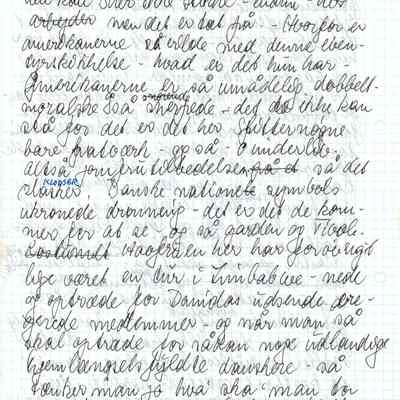 arbejder men det er tæt på. - Hvorfor er
amerikanerne så vilde med denne even-
tyrskikkelse - hvad er det hun har -
Amerikanerne er så umådelig dobbelt-
moralske så snerpede - det de ikke kan
stå for det er det her splitternøgne
bare
altså jomfrutilbedelsen på et så det
KLODSER
stråler. Danske nationale symbols
ukronede dronning - det er det de kom-
mer for at se - og så garden og Tivoli.
her har forøvrigt
lige været en tur i Zimbabwe - nede
og optræde for Danidas udsendte
medlemmer - og når man så
skal optræde for sådan nogle udlandige
hjemlængselsfyldte danskere - så
tænker man jo hva' ska' man